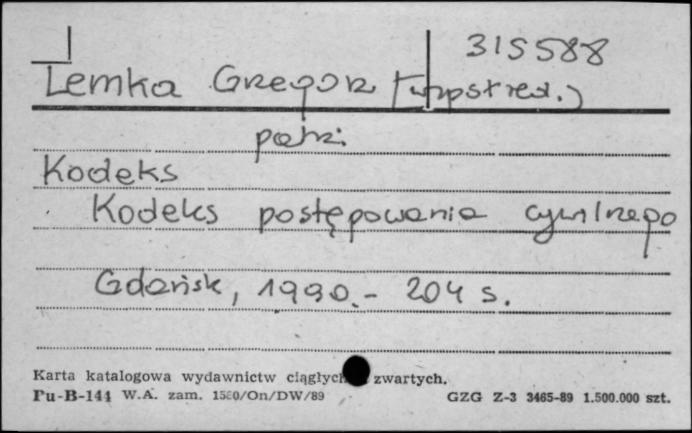 315588
Lemka Grzegorz (współred.)
patrz:
Kodeks
Kodeks postępowania cywilnego
Gdańsk, 1990.- 204 s.
Karta katalogowa wydawnictw ciągłych zwartych.
Pu-B-144 W.A. zam. 1580/On/DW/89 GZG Z-3 3465-89 1.500.000 szt.